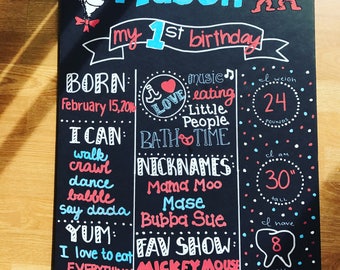 Mason
my 1st birthday
BORN:
February 15, 2016
I CAN:
walk
crawl
dance
babble
say dada
YUM:
I love to eat
EVERYTHING
I
LOVE
music
eating
Little
People
BATH TIME
NICKNAMES:
Mama Moo
Mase
Bubba Sue
FAV SHOW
MICKEY MOUSE
I weigh
24
pounds
I am
30"
tall
I have
8